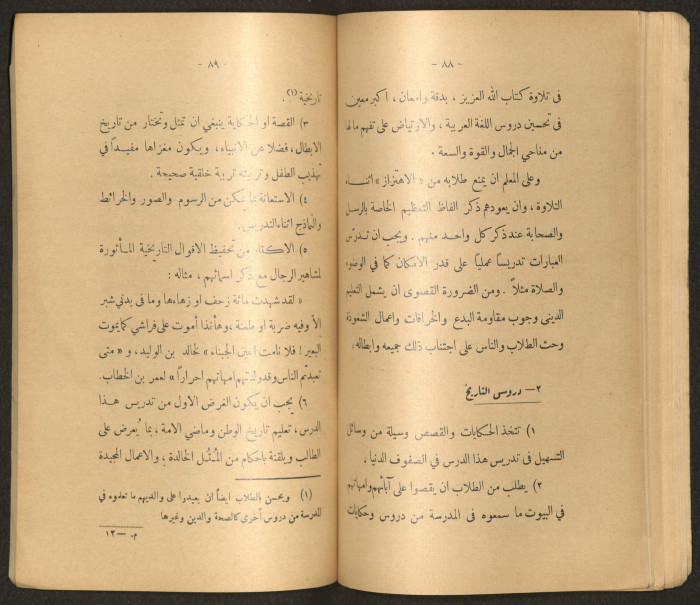 - ٨٨ -
فى تلاوة كتاب الله العزيز ، بدقة وامعان ، اكبر معين
فى تحسين دروس اللغة العربية ، والارتياض على تفهم مالها
من مناحي الجمال والقوة والسعة .
وعلى المعلم ان يمنع طلابه من « الاهتزاز » اثناء
التلاوة ، وان يعودهم ذكر الفاظ التعظيم الخاصة بالرسل
والصحابة عند ذكر كل واحد منهم . ويجب ان تدرّس
العبارات تدريساً عملياً على قدر الامكان كما في الوضوء
والصلاة مثلاً . ومن الضرورة القصوى ان يشمل التعليم
الدينى وجوب مقاومة البدع والخرافات واعمال الشعوذة
وحث الطلاب والناس على اجتناب ذلك جميعه وابطاله .
٢ - دروس التاريخ
١) تتخذ الحكايات والقصص وسيلة من وسائل
التسهيل فى تدريس هذا الدرس في الصفوف الدنيا .
٢) يطلب من الطلاب ان يقصوا على آبائهم وامهاتهم
في البيوت ما سمعوه فى المدرسة من دروس وحكايات
- ٨٩ -
تاريخية (١) .
٣) القصة او الحكاية ينبغي ان تمثل وتختار من تاريخ
الابطال ، فضلا عن الانبياء ، ويكون مغزاها مفيداً في
تهذيب الطفل وتربيته تربية خلقية صحيحة .
٤) الاستعانة بما يمكن من الرسوم والصور والخرائط
والنماذج اثناء التدريس .
٥) الاكثار من تحفيظ الاقوال التاريخية المأثورة
لمشاهير الرجال مع ذكر اسمائهم ، مثاله :
« لقد شهدت مائة زحف او زهاءها وما فى بدني شبر
الا وفيه ضربة او طعنة ، وهأنذا أموت على فراشي كما يموت
البعير ! فلا نامت اعين الجبناء » لخالد بن الوليد ، و « متى
تعبدتم الناس وقد ولدتهم امهاتهم احراراً » لعمر بن الخطاب .
٦) يجب ان يكون الغرض الاول من تدريس هذا
الدرس ، تعليم تاريخ الوطن وماضي الامة ، بما يُعرض على
الطالب ويلقنة باحكام من المُثُل الخالدة ، والاعمال المجيدة
(١) ويحسن بالطلاب ايضاً ان يعيدوا على والديهم ما تعلموه في
المدرسة من دروس أخرى كالصحة والدين وغيرها
م. — ١٢